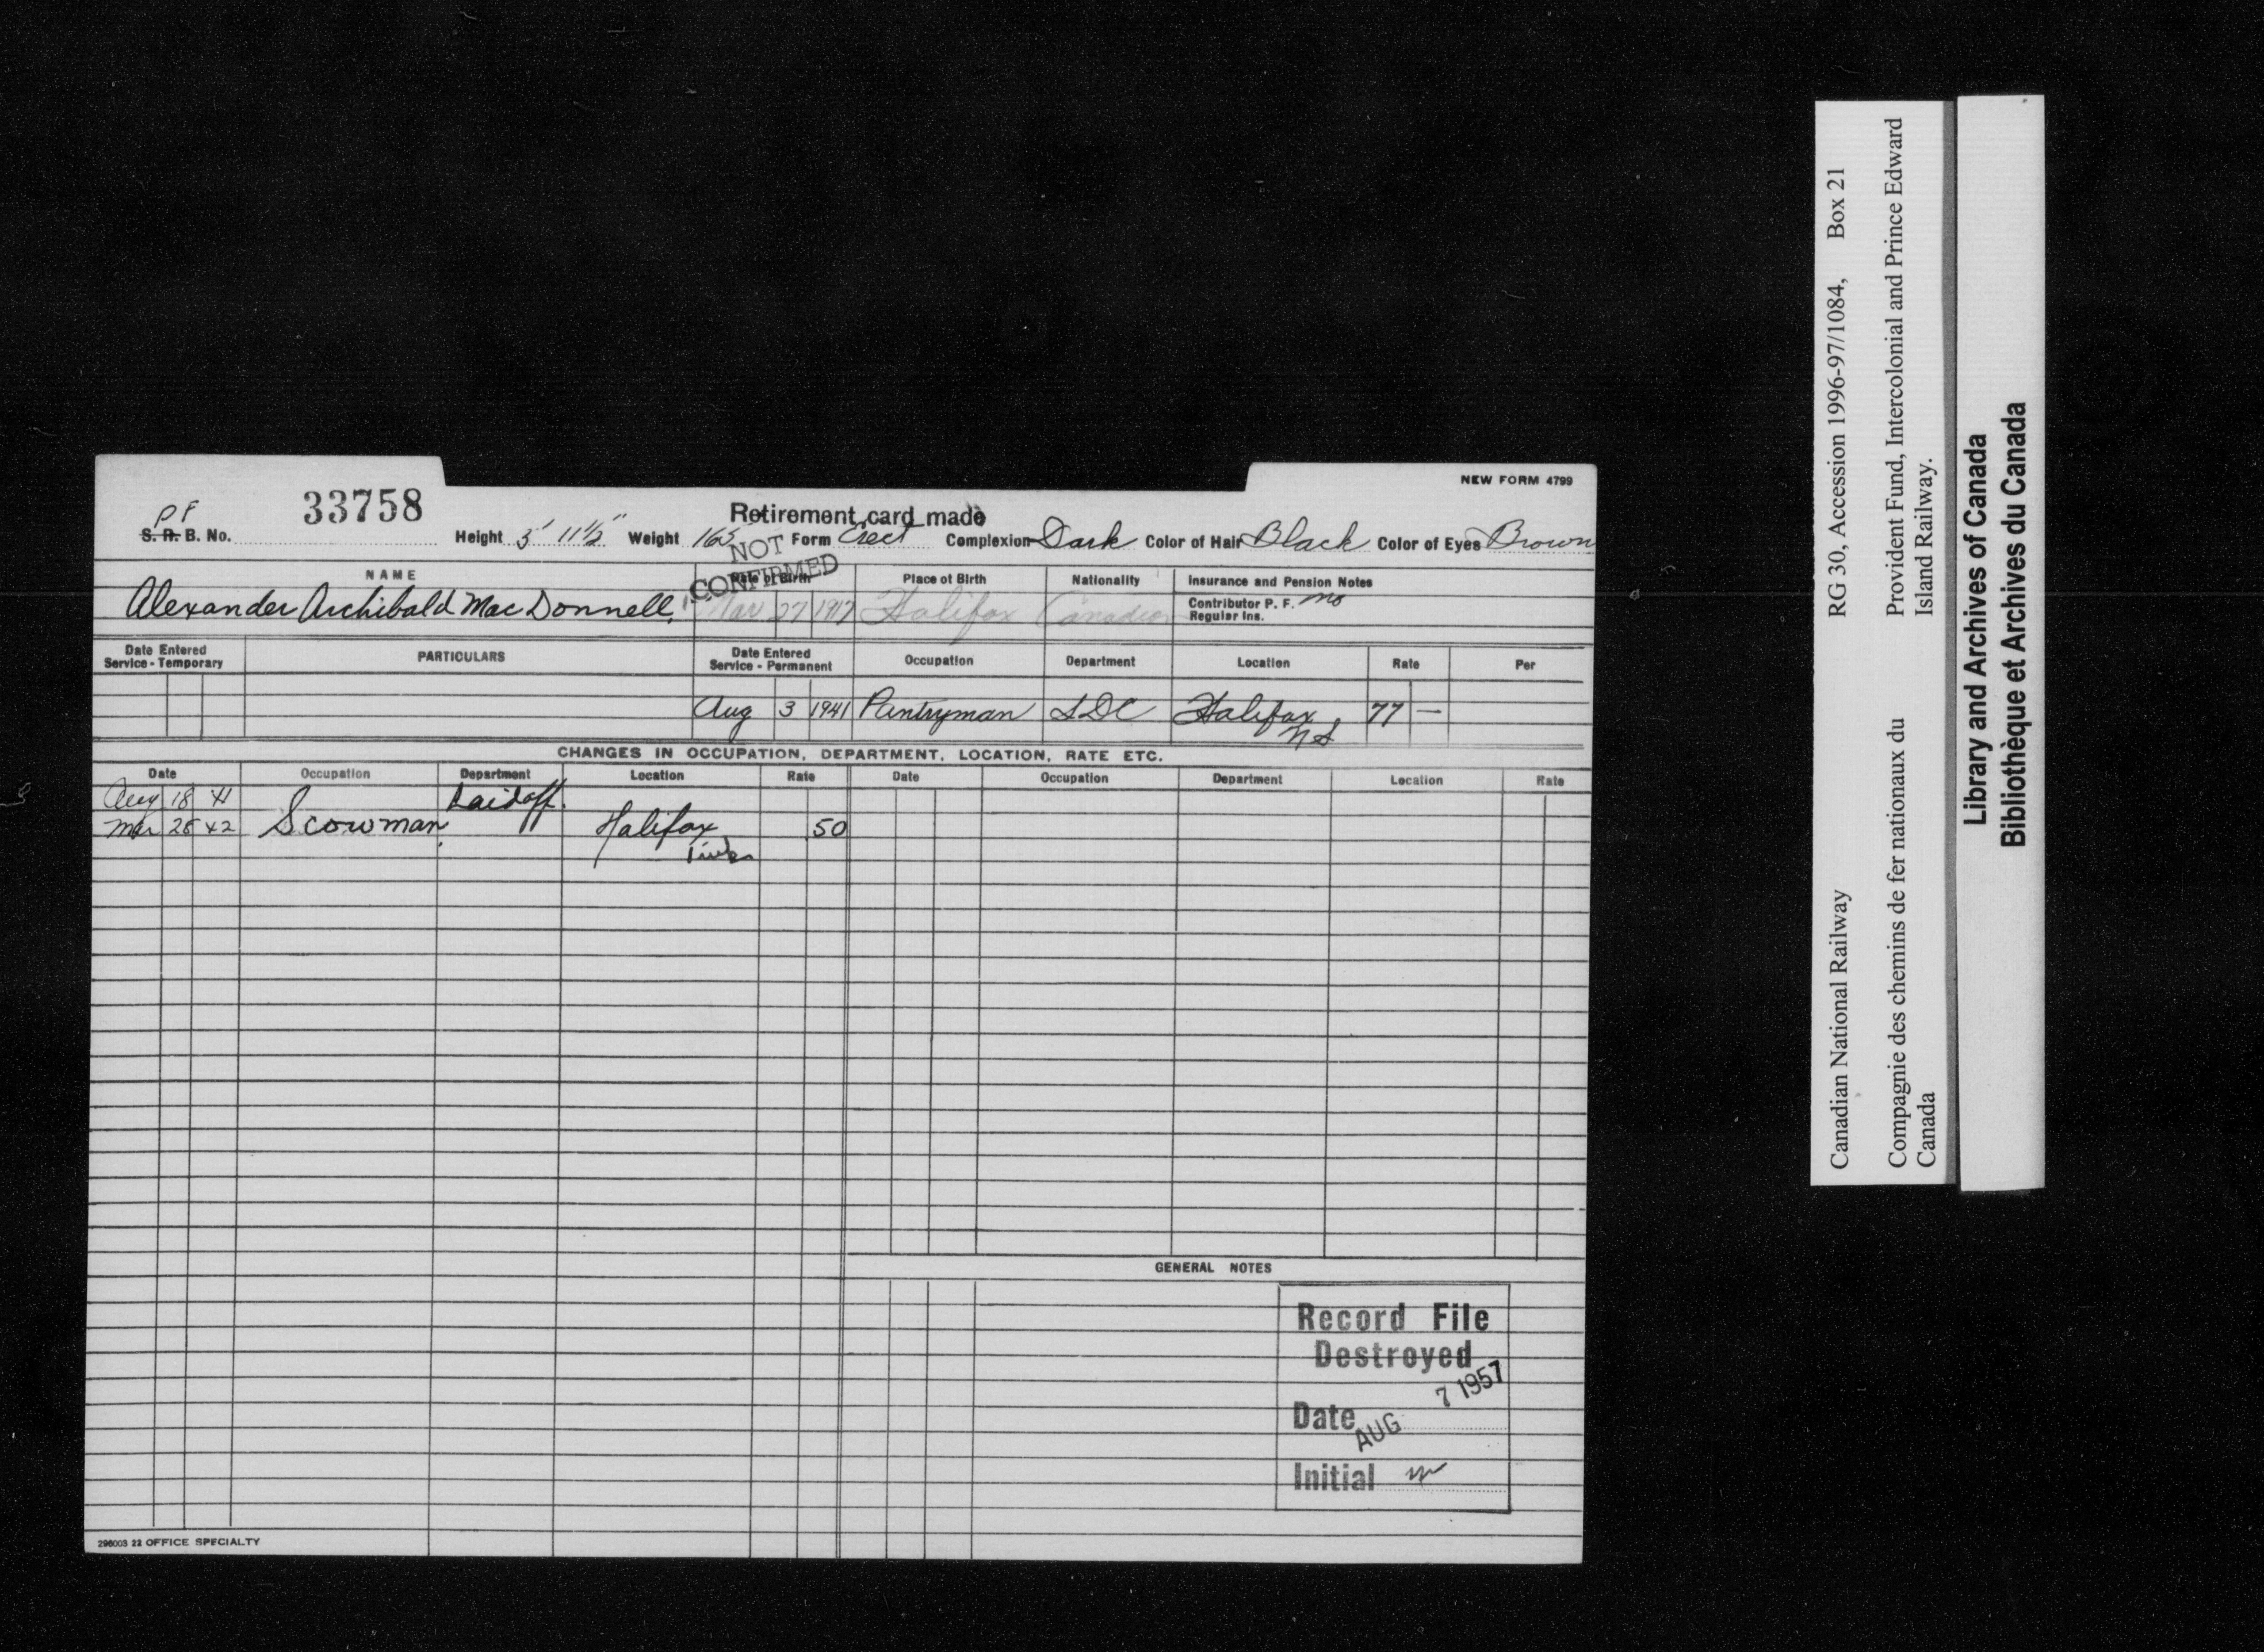 NEW FORM 4799
33758
PF
S. R. B. No.
Retirement card made
Height 5' 11½" Weight 165 Form Erect Complexion Dark Color of Hair Black Color of Eyes Brown
NOT CONFIRMED
NAME Date of Birth Place of Birth Nationality Insurance and Pension Notes
Alexander Archibald MacDonnell. Mar 27 1917 Halifax Canadian
Contributor P. F. no
Regular Ins.
Date Entered Service - Temporary PARTICULARS Date Entered Service - Permanent Occupation Department Location Rate Per
Aug 3 1941 Pantryman SDC Halifax, NS 77 —
CHANGES IN OCCUPATION, DEPARTMENT, LOCATION, RATE ETC.
Date Occupation Department Location Rate Date Occupation Department Location Rate
Aug 18 41 Laid off.
Mar 28 42 Scowman Halifax 50
GENERAL NOTES
Record File
Destroyed
Date AUG 7 1957
Initial
298003 22 OFFICE SPECIALTY
Canadian National Railway RG 30, Accession 1996-97/1084, Box 21
Compagnie des chemins de fer nationaux du Canada
Provident Fund, Intercolonial and Prince Edward Island Railway.
Library and Archives of Canada
Bibliothèque et Archives du Canada